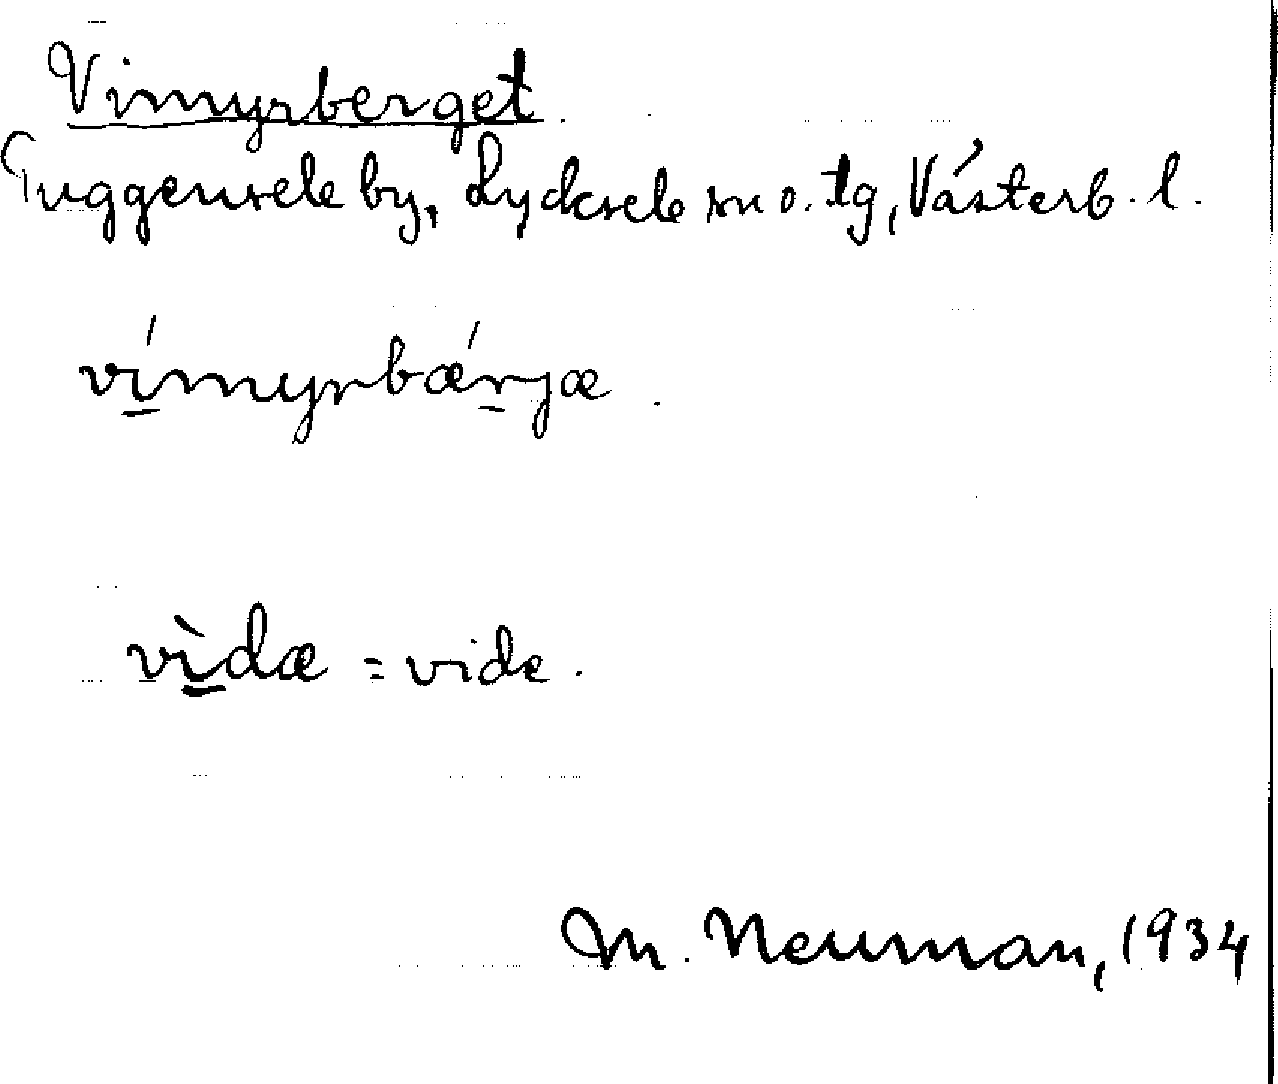 Vimyrberget.
Tuggensele by, Lycksele sn o. tg, Västerb. l.
vímyrbǽrjæ.
vìdæ = vide.
M. Neuman, 1934